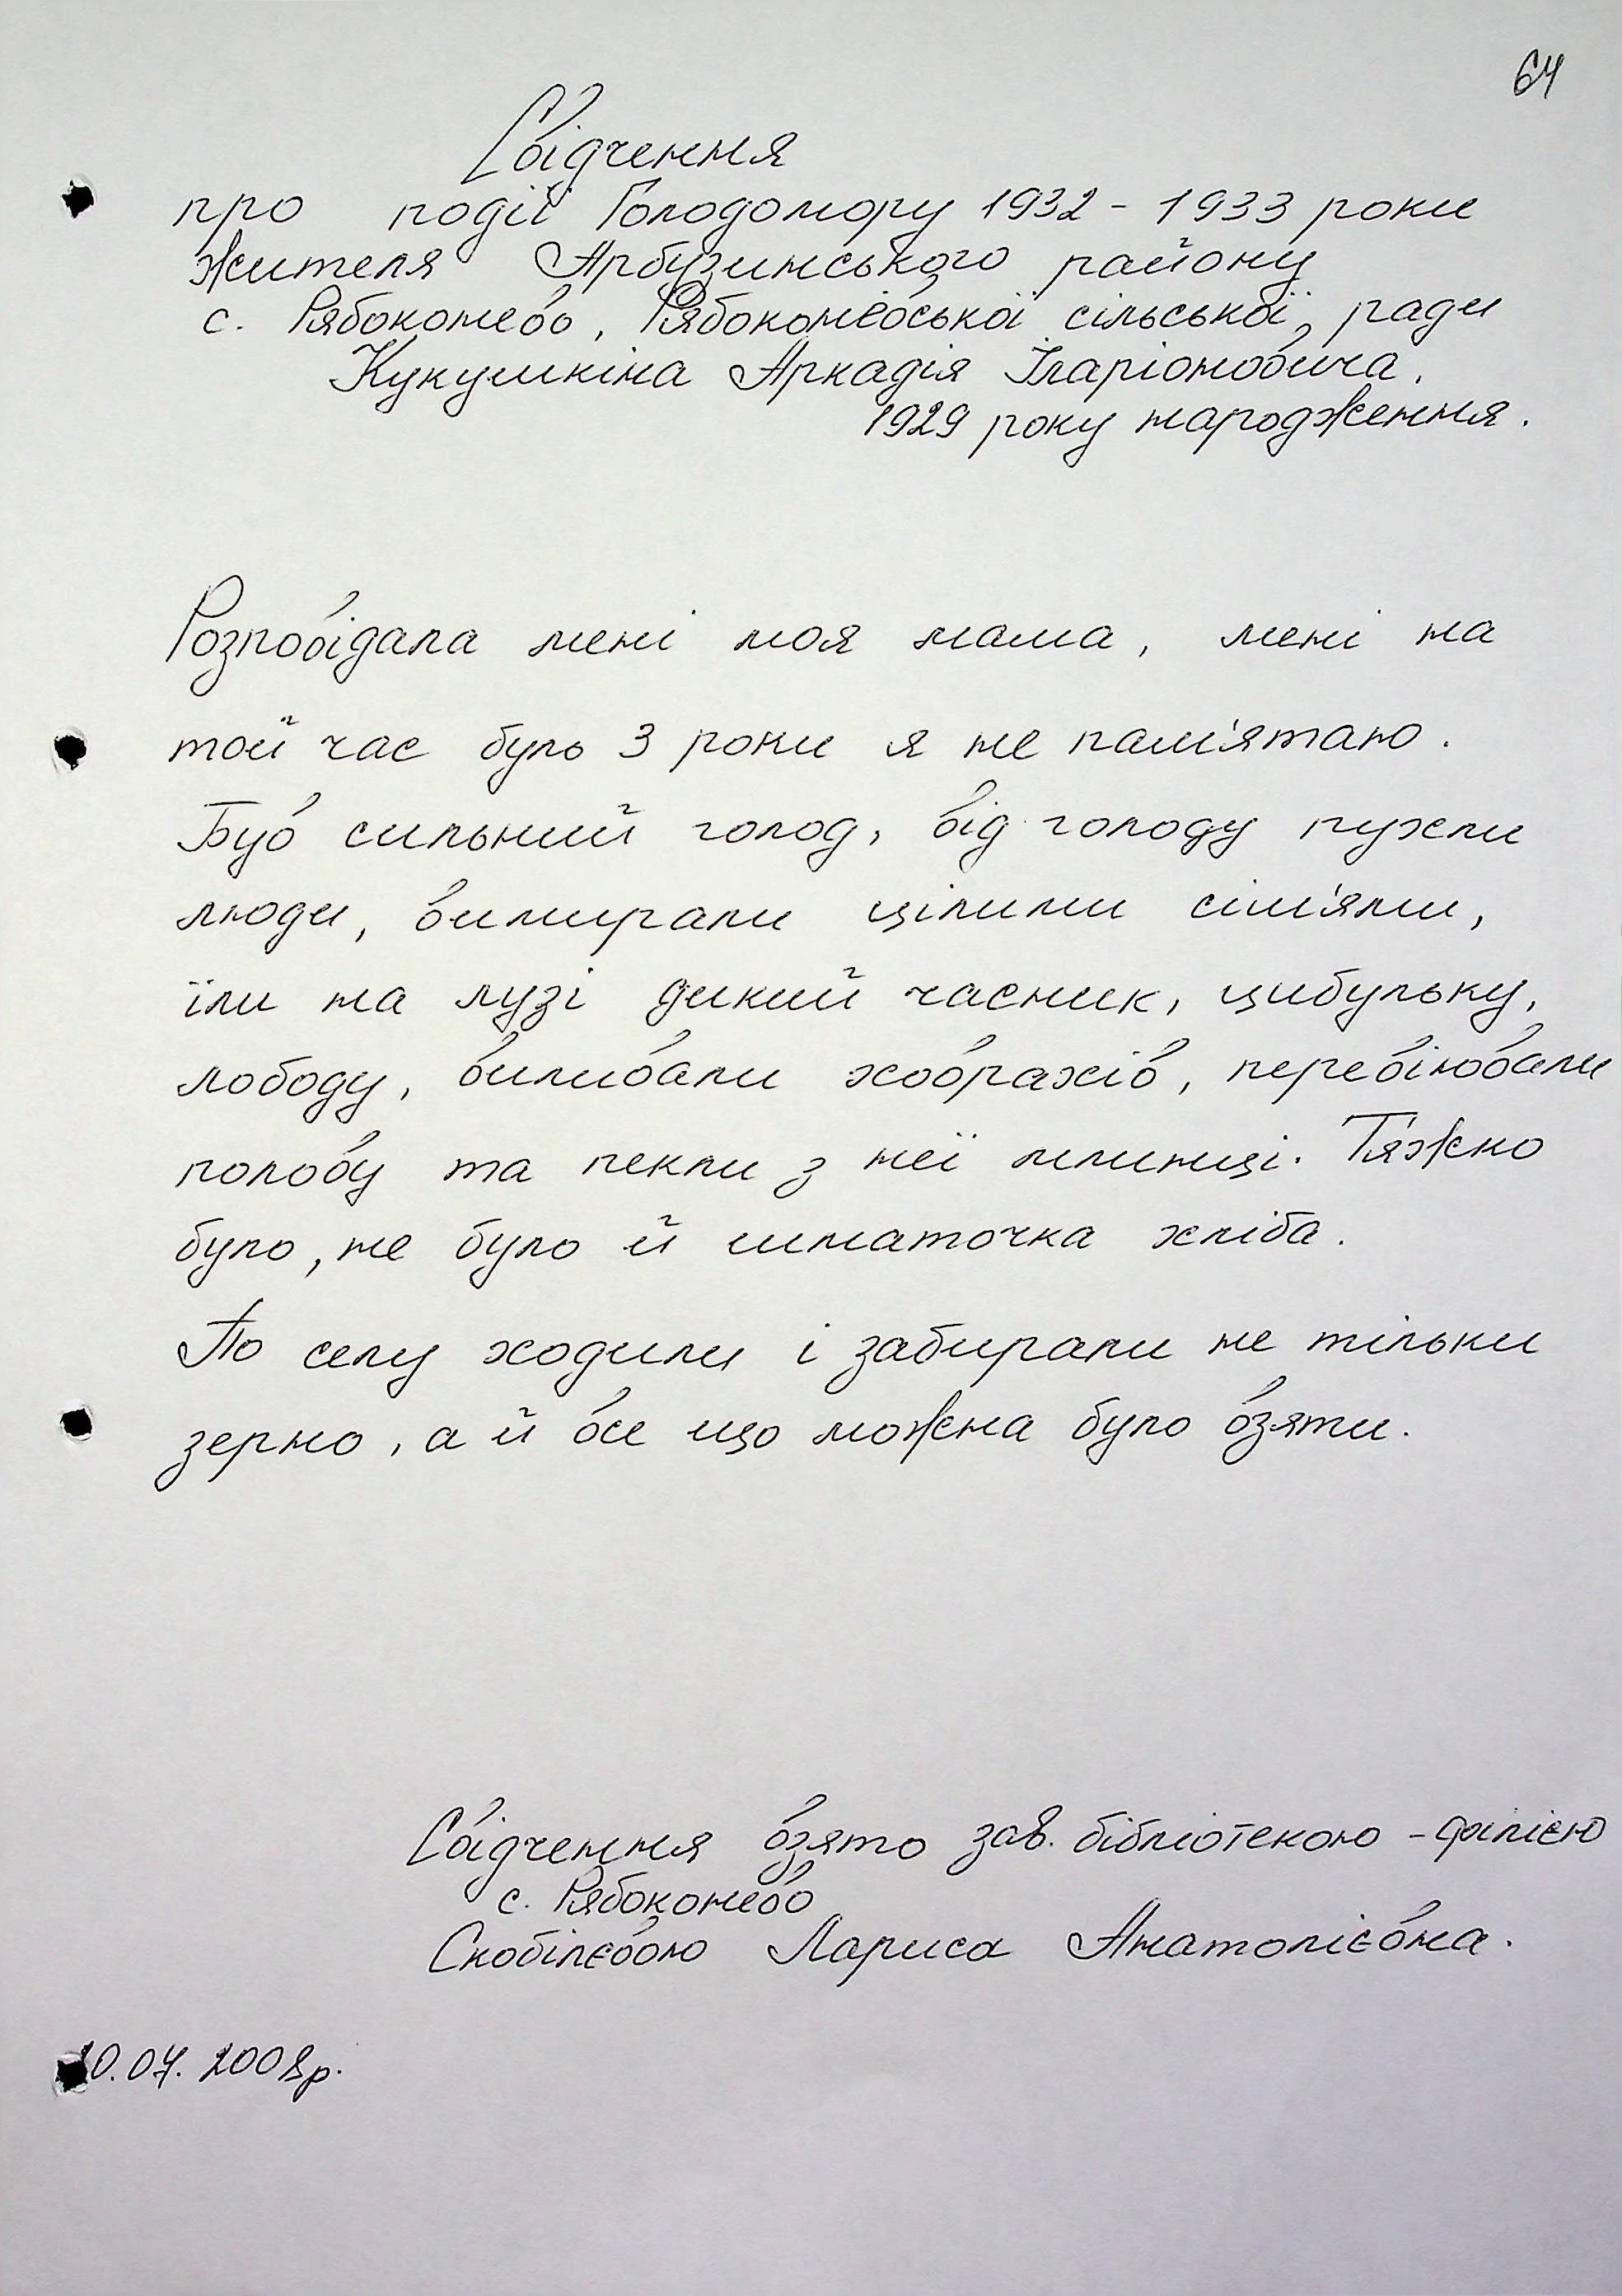 64
Свідчення
про події Голодомору 1932 - 1933 роки
жителя Арбузинського району
с. Рябоконево, Рябоконевської сільської ради
Кукушкіна Аркадія Іларіоновича.
1929 року народження.
Розповідала мені моя мама, мені на
той час було 3 роки я не пам'ятаю.
Був сильний голод, від голоду пухли
люди, вимирали цілими сім'ями,
їли на лузі дикий часник, цибульку,
лободу, виливали ховрахів, перевіювали
полову та пекли з неї млинці. Тяжко
було, не було й шматочка хліба.
По селу ходили і забирали не тільки
зерно, а й все що можна було взяти.
Свідчення взято зав. бібліотекою - філією
с. Рябоконево
Скобілєвою Лариса Анатоліївна.
.07.2008р.